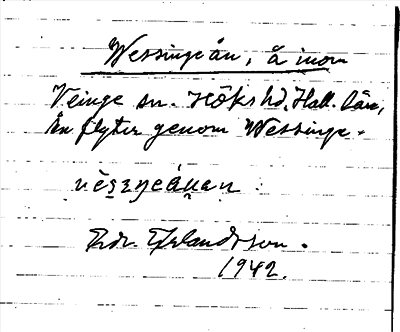 Wessinge ån, å inom
Veinge sn. Höks hd, Hall. län,
Ån flyter genom Wessinge.
Erlandsson.
1942.